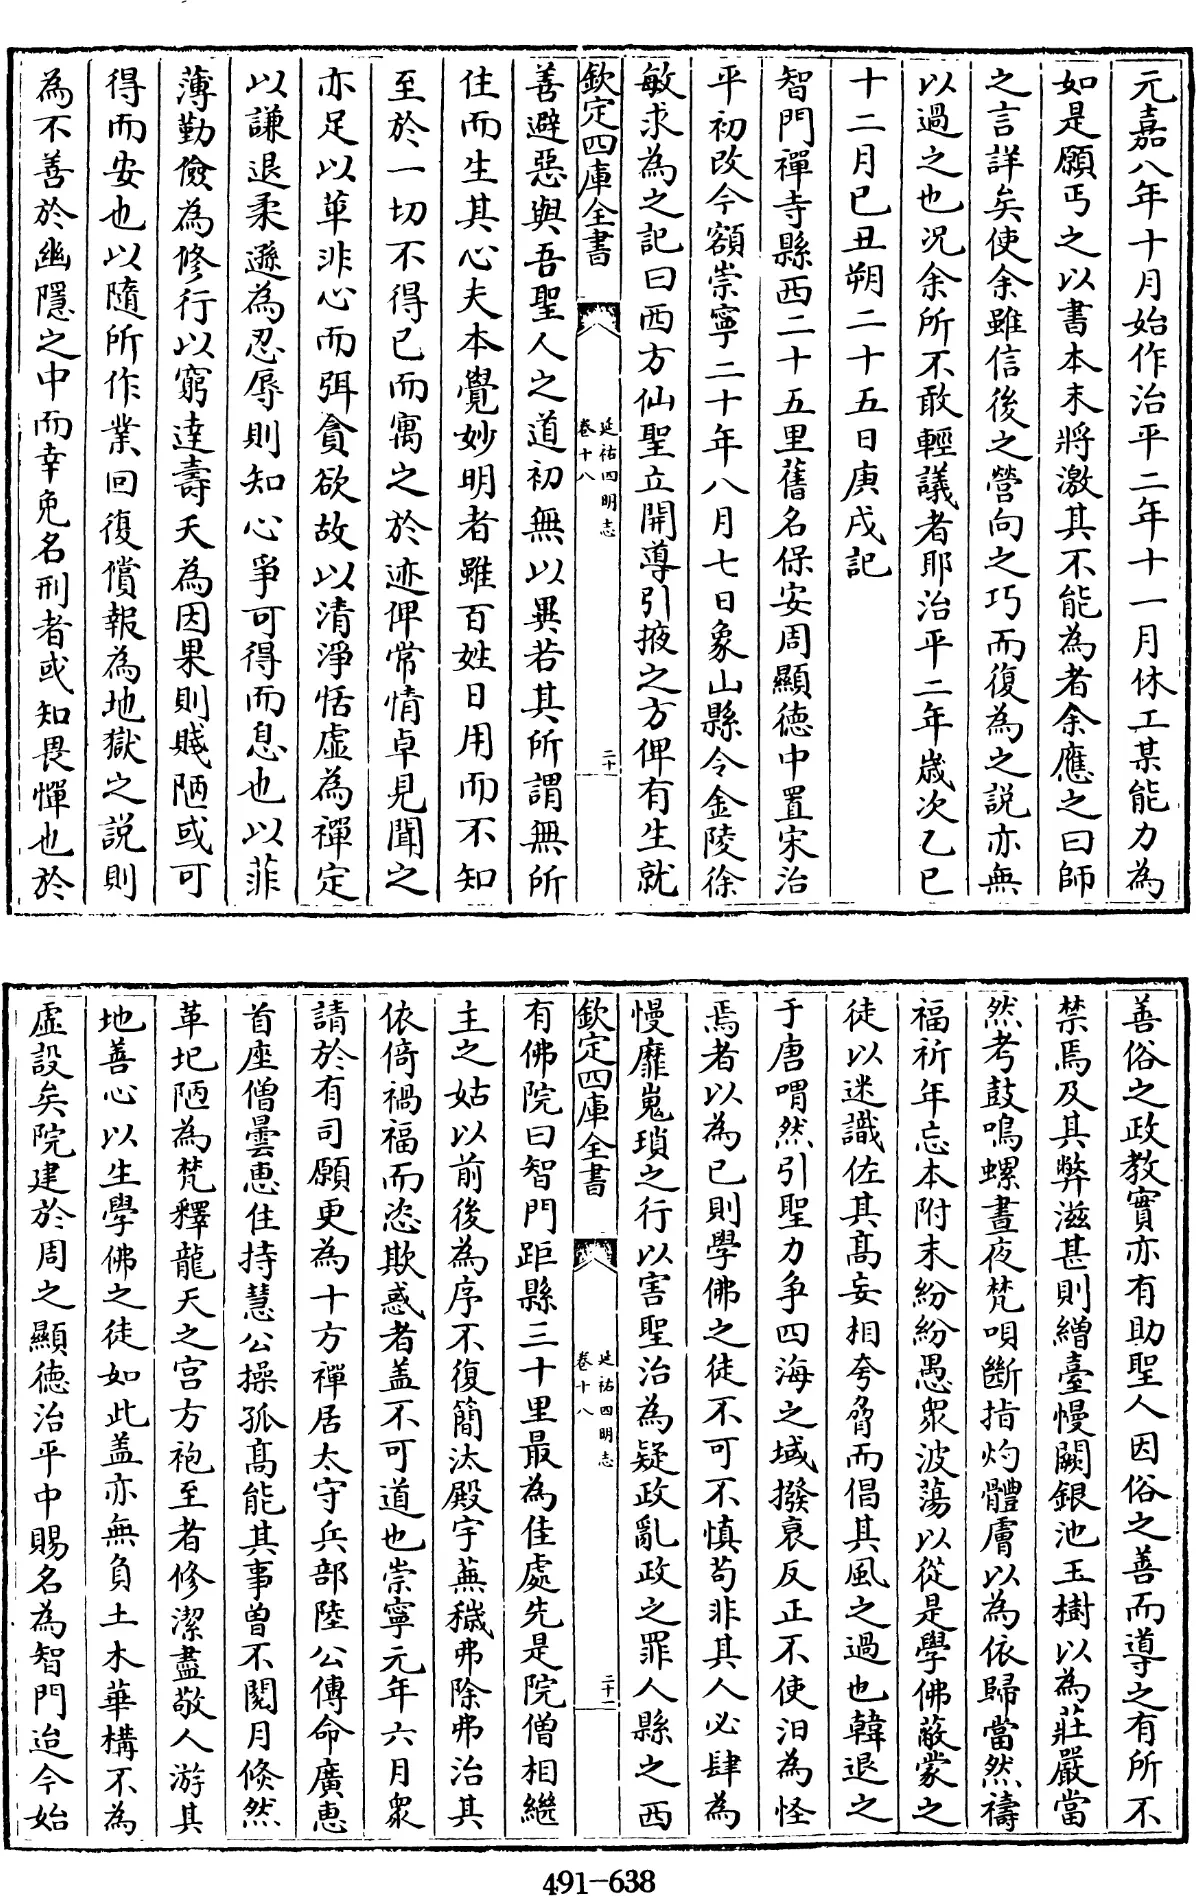 元嘉八年十月始作治平二年十一月休工某能力為
如是願丐之以書本末將激其不能為者余應之曰師
之言詳矣使余雖信後之營向之巧而復為之説亦無
以過之也况余所不敢輕議者耶治平二年歳次乙巳
十二月已丑朔二十五日庚戌記
智門禪寺縣西二十五里舊名保安周顯徳中置宋治
平初改今額崇寧二十年八月七日象山縣令金陵徐
敏求為之記曰西方仙聖立開導引掖之方俾有生就
欽定四庫全書
延祐四明志
卷十八
二十
善避惡與吾聖人之道初無以異若其所謂無所
住而生其心夫本覺妙明者雖百姓日用而不知
至於一切不得已而寓之於迹俾常情卓見聞之
亦足以革非心而弭貪欲故以清淨恬虛為禪定
以謙退柔遜為忍辱則知心爭可得而息也以菲
薄勤儉為修行以窮達壽夭為因果則賤陋或可
得而安也以隨所作業回復償報為地獄之説則
為不善於幽隱之中而幸免名刑者或知畏憚也於
善俗之政教實亦有助聖人因俗之善而導之有所不
禁焉及其弊滋甚則繒臺慢闕銀池玉樹以為莊嚴當
然考鼓鳴螺晝夜梵唄斷指灼體膚以為依歸當然禱
福祈年忘本附末紛紛愚衆波蕩以從是學佛蔽蒙之
徒以迷識佐其髙妄相夸脅而倡其風之過也韓退之
于唐喟然引聖力争四海之域撥衰反正不使汨為怪
焉者以為已則學佛之徒不可不慎苟非其人必肆為
慢靡嵬瑣之行以害聖治為疑政亂政之罪人縣之西
欽定四庫全書
延祐四明志
卷十八
二十一
有佛院曰智門距縣三十里最為佳處先是院僧相繼
主之姑以前後為序不復簡汰殿宇蕪穢弗除弗治其
依倚禍福而恣欺惑者盖不可道也崇寧元年六月衆
請於有司願更為十方禪居太守兵部陸公傳命廣惠
首座僧曇惠住持慧公操孤髙能其事曽不閱月倐然
革圮陋為梵釋龍天之宫方袍至者修潔盡敬人游其
地善心以生學佛之徒如此盖亦無負土木華構不為
虛設矣院建於周之顯徳治平中賜名為智門迨今始
491-638